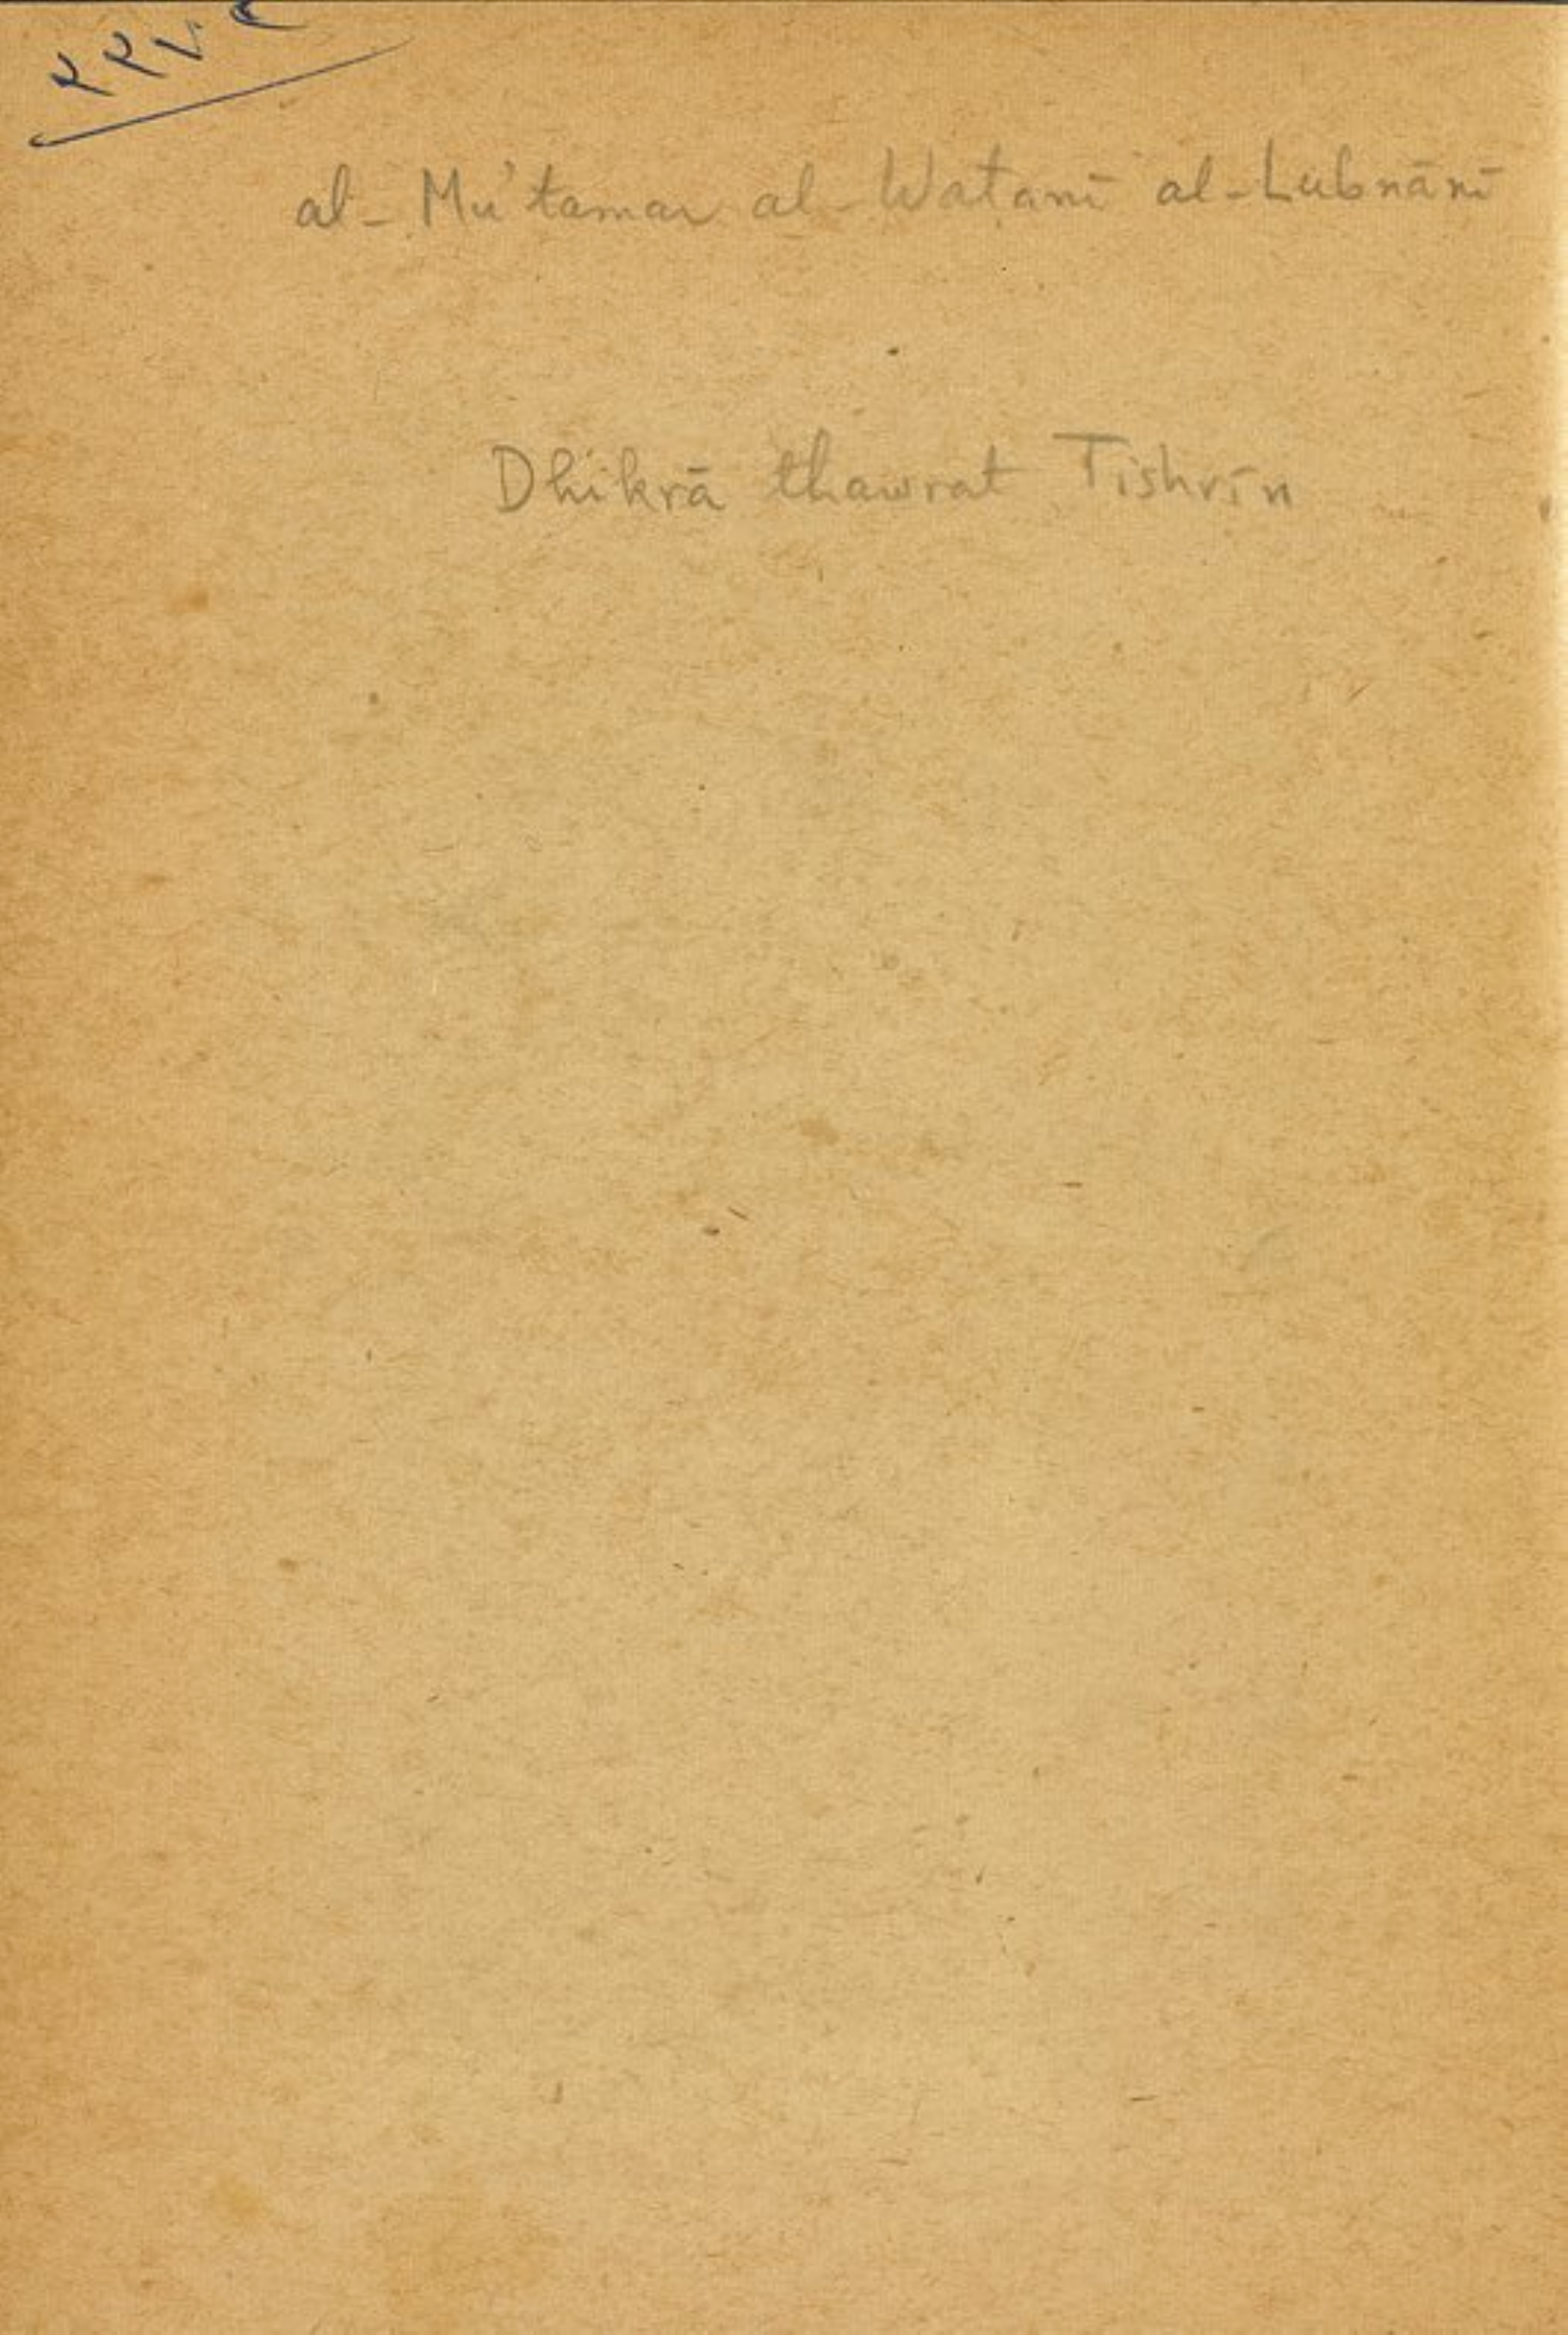 al-Mu'tamar al-Waṭanī al-Lubnānī
Dhikrā thawrat Tishrīn